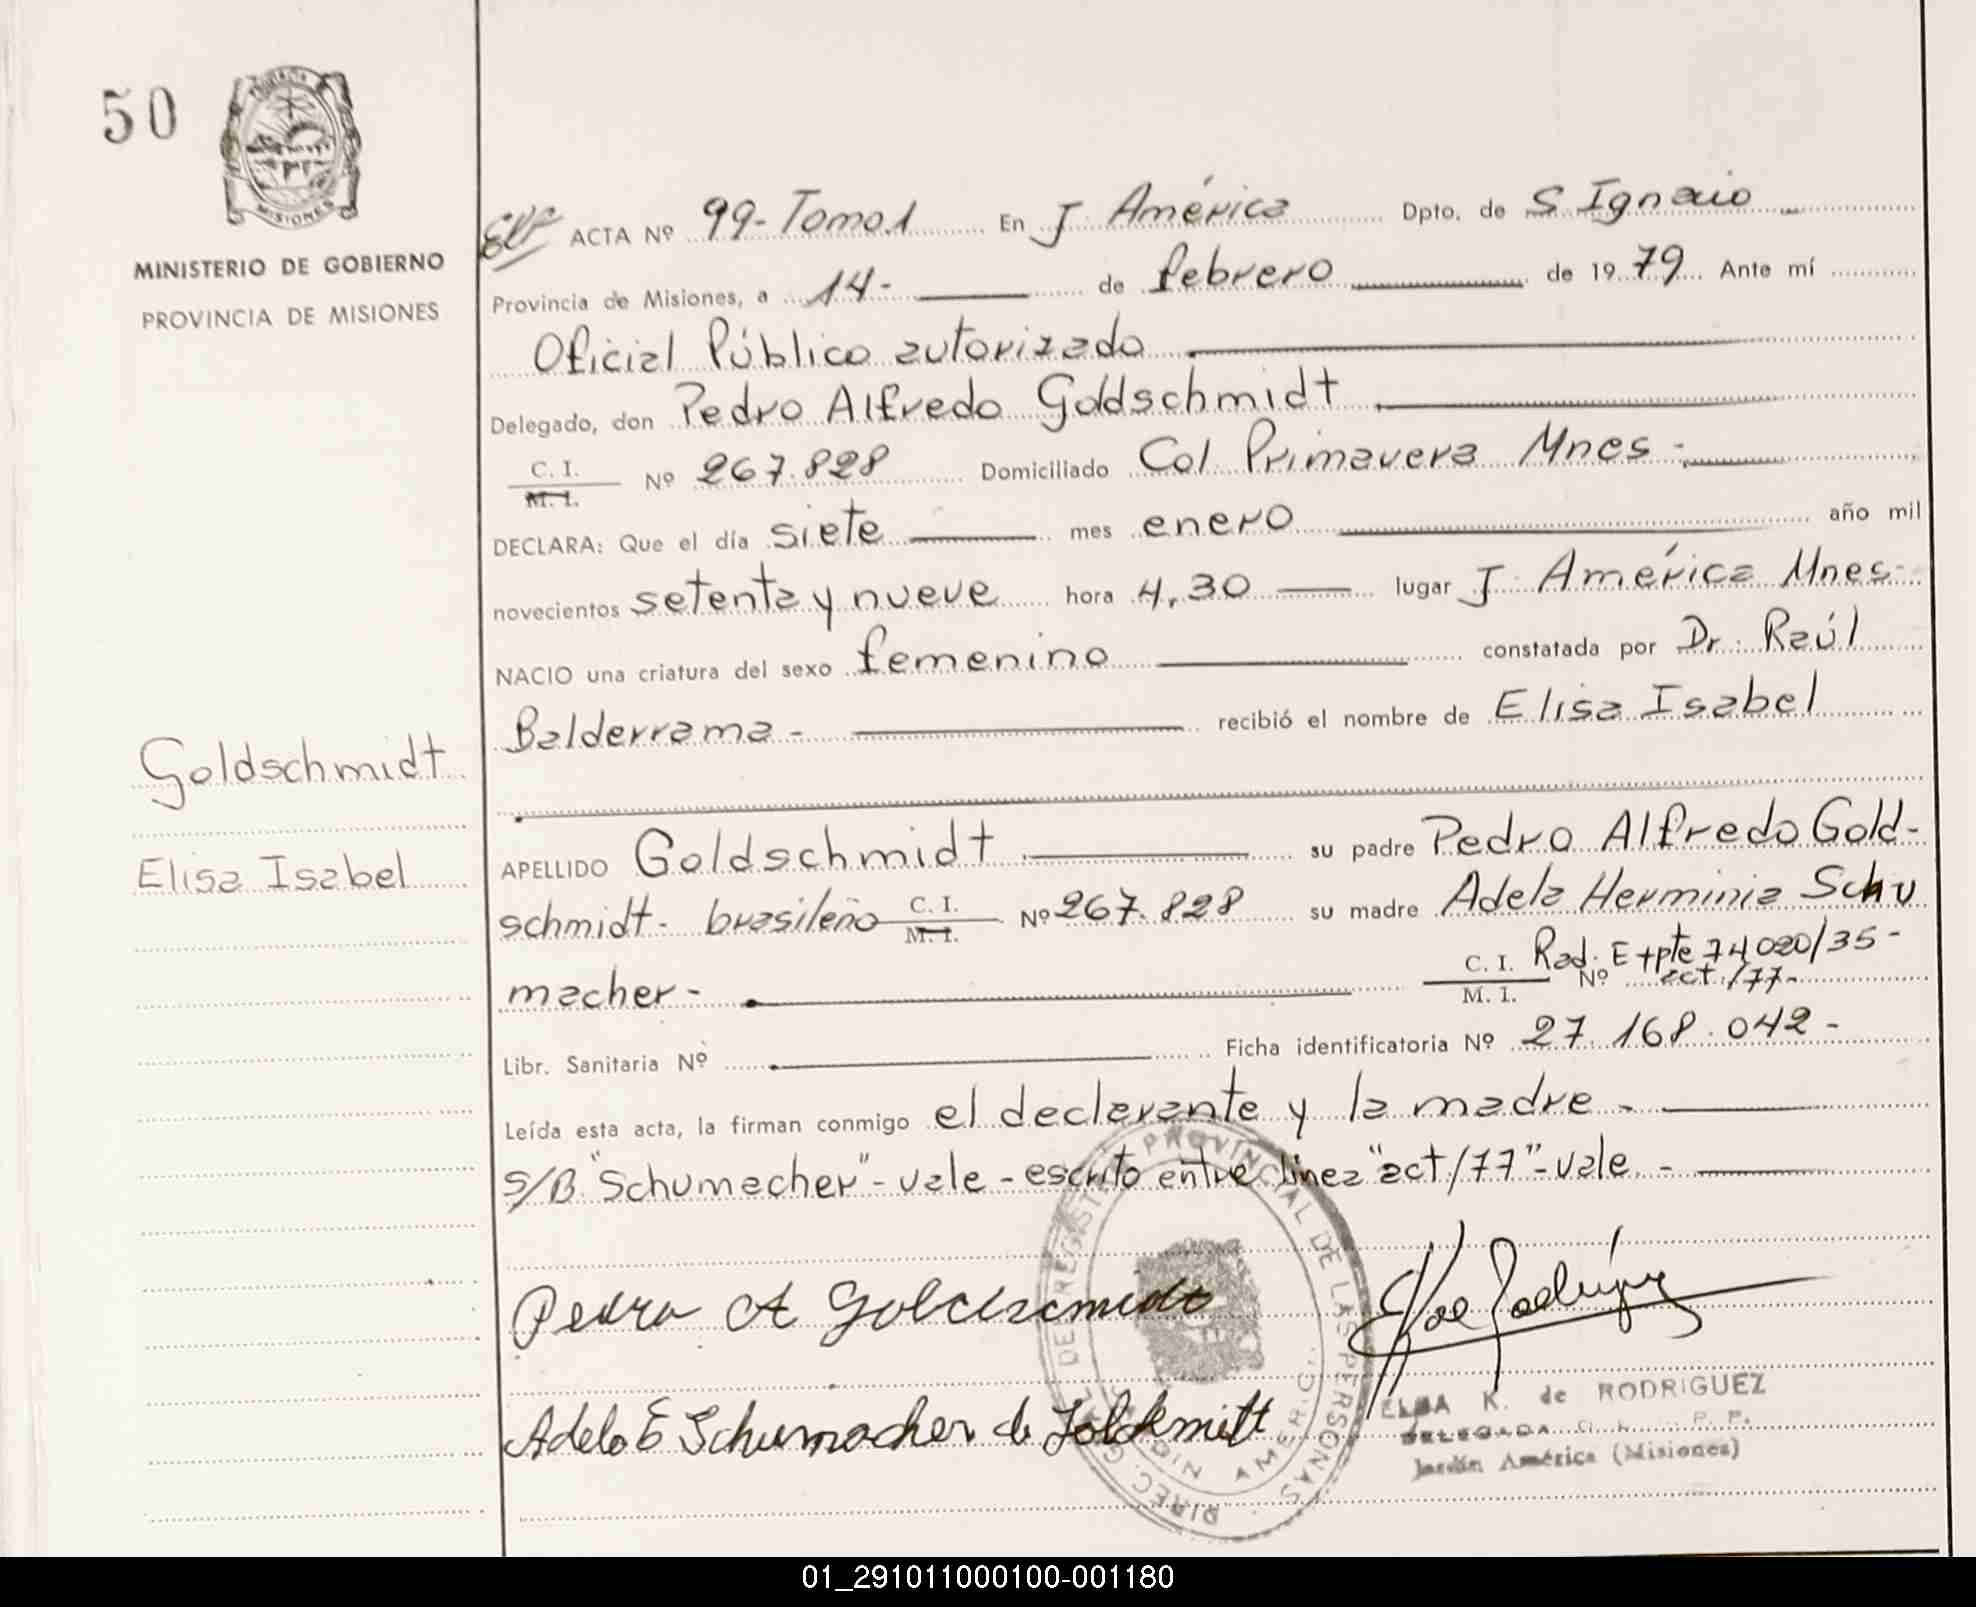 50
MISIONES
MINISTERIO DE GOBIERNO
PROVINCIA DE MISIONES
ACTA Nº 99-Tomo 1 En J. América Dpto. de S. Ignacio
Provincia de Misiones, a 14- de febrero de 1979 Ante mí
Oficial Público autorizado
Delegado, don Pedro Alfredo Goldschmidt
C. I.
M. I. Nº 267.828 Domiciliado Col. Primavera Mnes -
DECLARA: Que el día siete mes enero año mil
novecientos setenta y nueve hora 4,30 lugar J. América Mnes-
NACIO una criatura del sexo femenino constatada por Dr. Raúl
Balderrama - recibió el nombre de Elisa Isabel
Goldschmidt
Elisa Isabel
APELLIDO Goldschmidt su padre Pedro Alfredo Gold-
schmidt- brasileño C. I. M. I. Nº 267.828 su madre Adela Herminia Schu
macher - C. I. M. I. Nº Rad. Expte 74020/35 -
act./77-
Libr. Sanitaria Nº Ficha identificatoria Nº 27.168.042 -
Leída esta acta, la firman conmigo el declarante y la madre -
S/B "Schumacher" - vale - escrito entre linea "act/77" - vale -
Pedro A Goldschmidt
Adela E Schumacher de Goldsmitt
DIREC. GRAL. DE REGISTRO PROVINCIAL DE LAS PERSONAS
JARDIN AMERICA
ELBA K. de RODRIGUEZ
DELEGADA
Jardín América (Misiones)
01_291011000100-001180